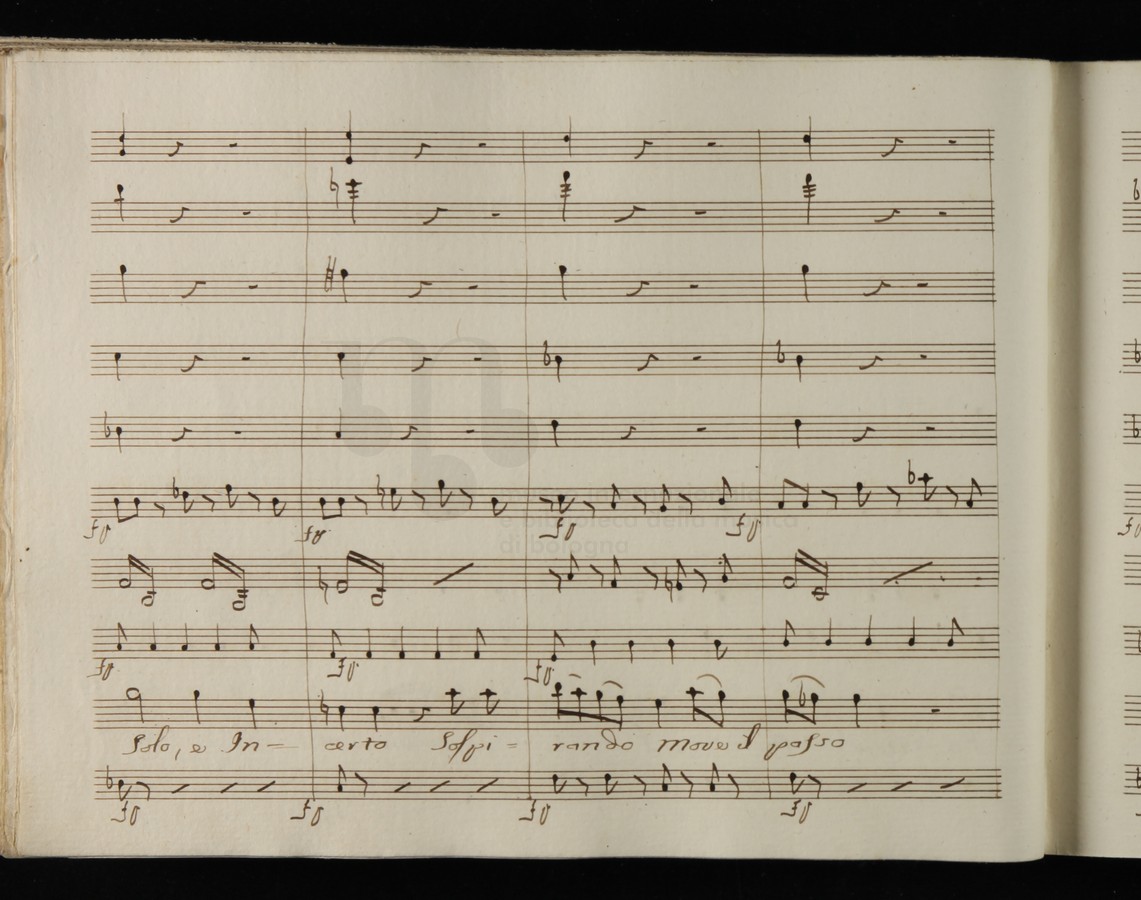 fo fo fo fo
fo fo fo
Solo, e In= certo Sospi= rando move il passo
fo fo fo fo
e biblioteca della musica
di bologna